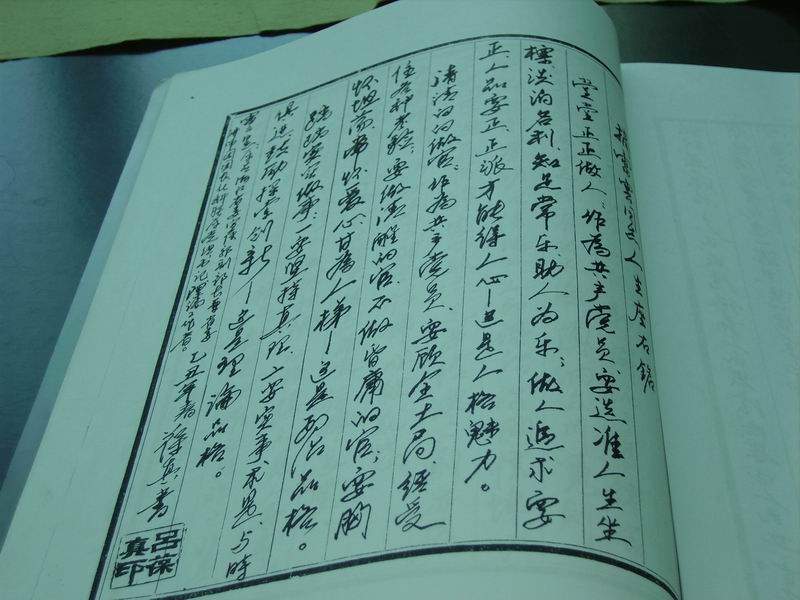 人生座右铭
堂堂正正做人：作为共产党员要选准人生坐
标，淡泊名利，知足常乐，助人为乐；做人追求要
正，人品要正，正派才能得人心—这是人格魅力。
清清白白做官：作为共产党员，要顾全大局，经受
住各种考验；要做清醒的官，不做昏庸的官；要胸
怀坦荡，常怀爱心，甘为人梯—这是政治品格。
踏踏实实做事：一要坚持真理，二要实事求是，与时
俱进，鼓励探索创新—这是理论品格。
理论工作者 乙丑年春 葆真书
吕葆
真印